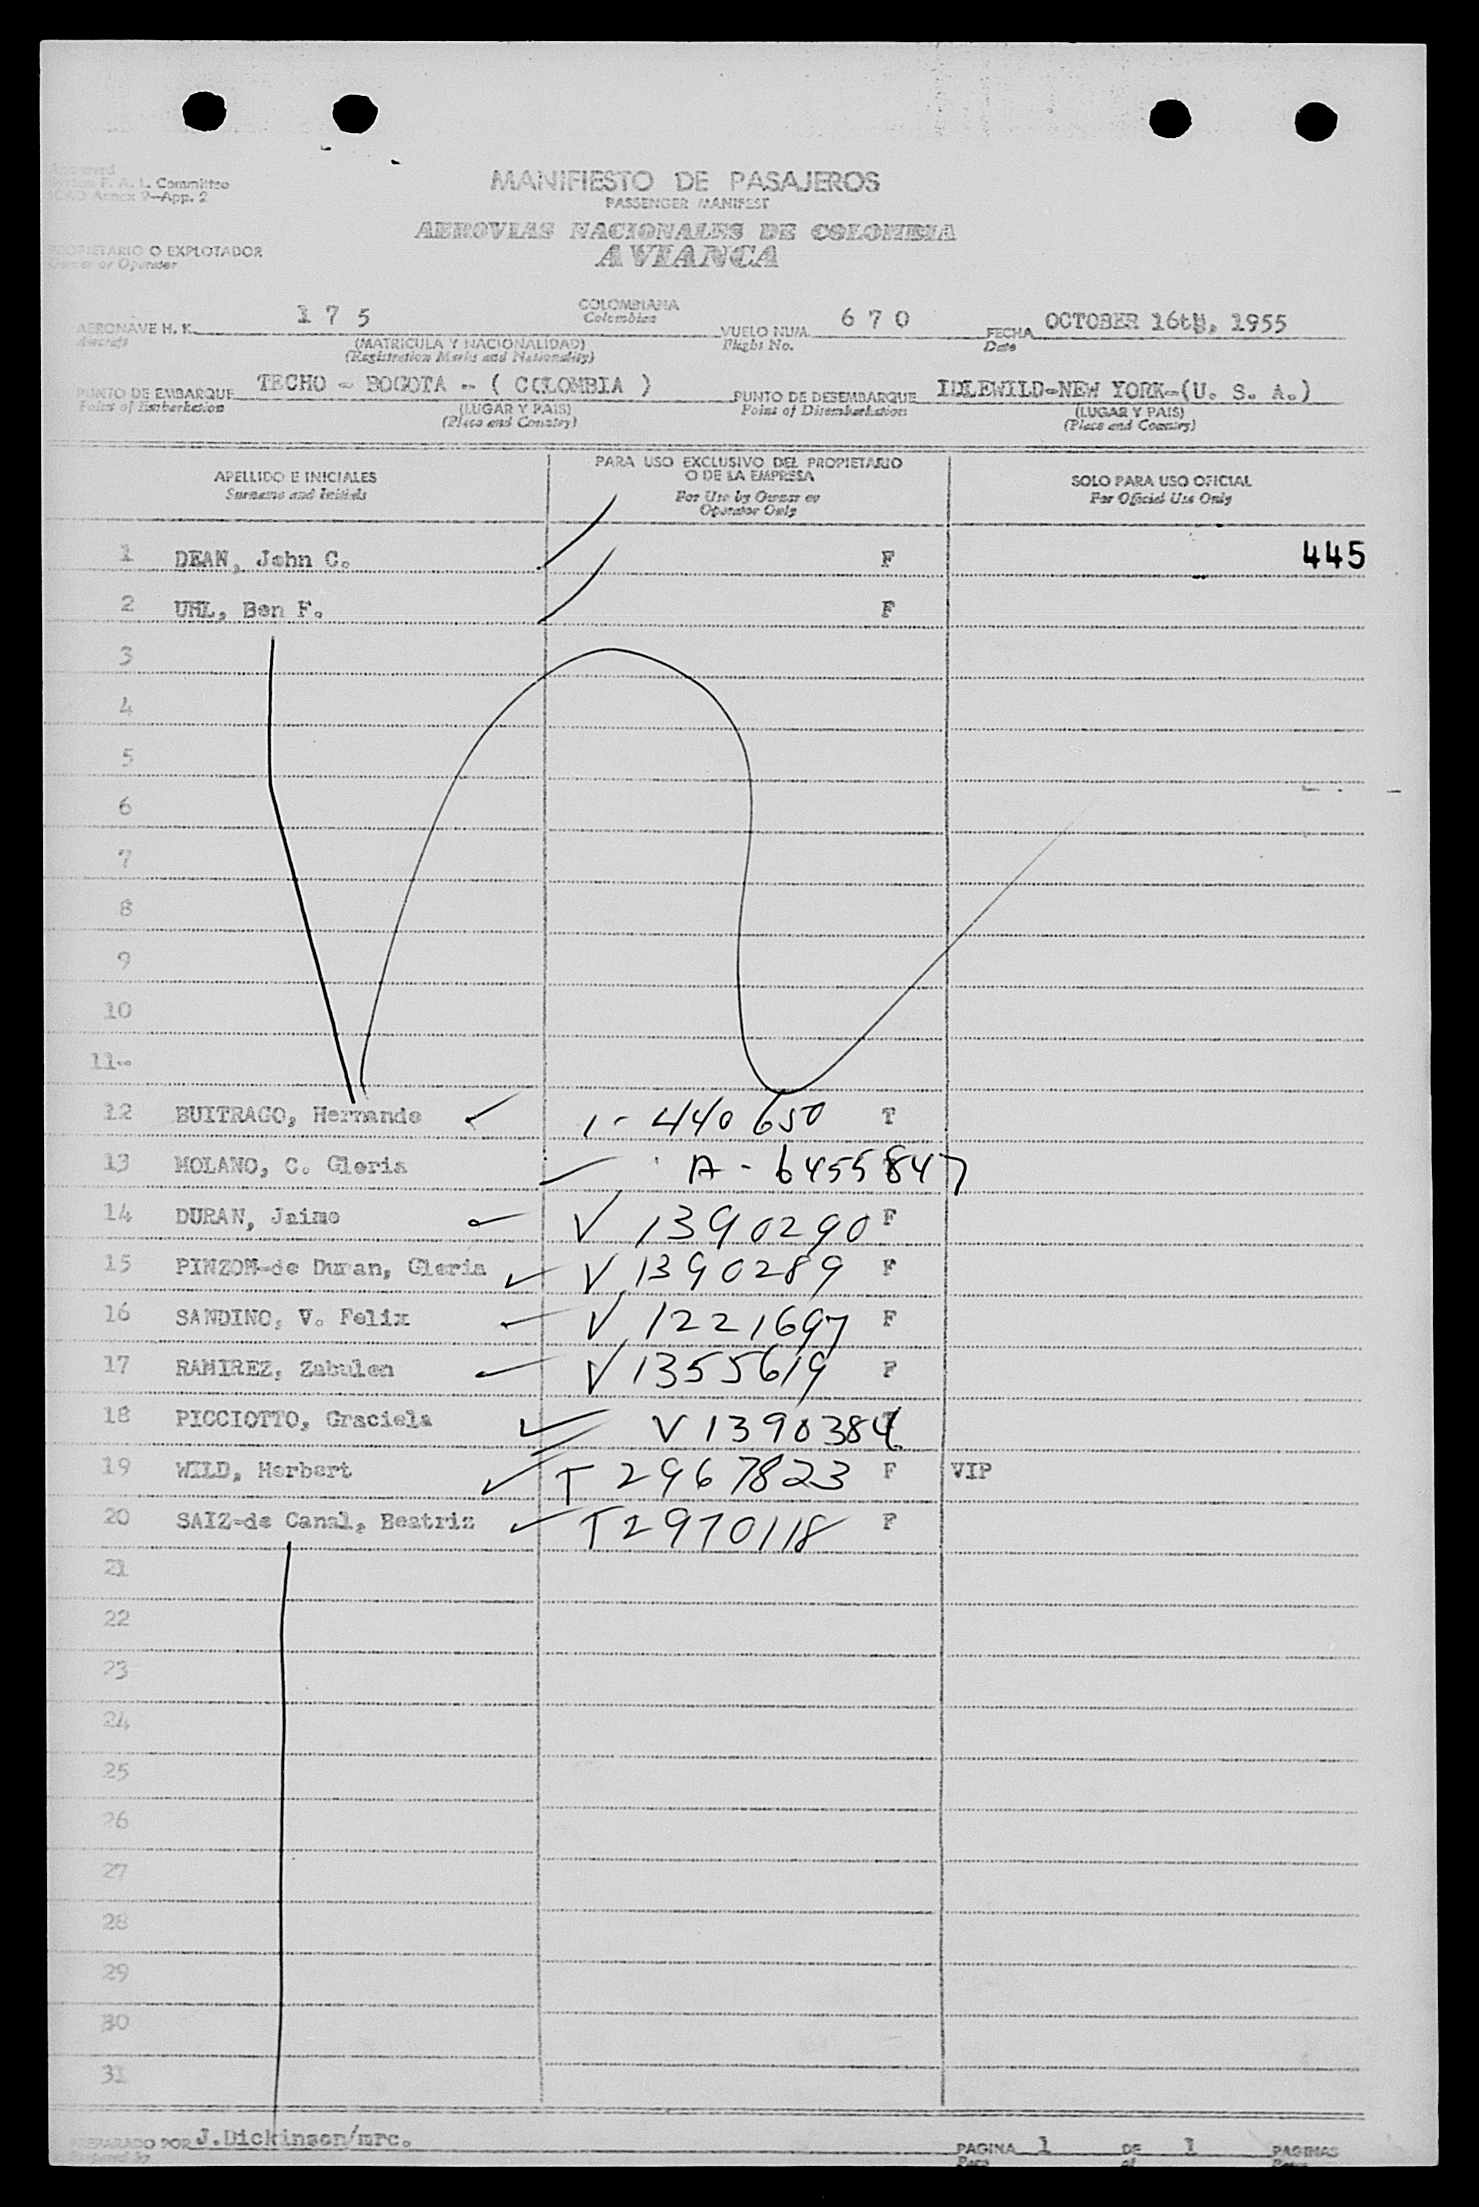 Approved
F. A. L. Committee
ICAO Annex 9—App. 2
MANIFIESTO DE PASAJEROS
PASSENGER MANIFEST
AEROVIAS NACIONALES DE COLOMBIA
AVIANCA
PROPIETARIO O EXPLOTADOR
Owner or Operator
AERONAVE H. K. 1 7 5 COLOMBIANA VUELO NUM. 6 7 0 FECHA OCTOBER 16th, 1955
Aircraft (MATRICULA Y NACIONALIDAD) Colombian Flight No. Date
(Registration Marks and Nationality)
PUNTO DE EMBARQUE TECHO - BOGOTA - ( COLOMBIA ) PUNTO DE DESEMBARQUE IDLEWILD-NEW YORK-(U. S. A.)
Point of Embarkation (LUGAR Y PAIS) Point of Disembarkation (LUGAR Y PAIS)
(Place and Country) (Place and Country)
APELLIDO E INICIALES PARA USO EXCLUSIVO DEL PROPIETARIO O DE LA EMPRESA SOLO PARA USO OFICIAL
Surname and Initials For Use by Owner or Operator Only For Official Use Only
1 DEAN, John C. F 445
2 UHL, Ben F. F
3
4
5
6
7
8
9
10
11--
12 BUITRAGO, Hernando 1- 440650 T
13 MOLANO, C. Gloria A - 6455847
14 DURAN, Jaime V 1390290 F
15 PINZON-de Duran, Gloria V 1390289 F
16 SANDINO, V. Felix V 1221697 F
17 RAMIREZ, Zabulon V 1355619 F
18 PICCIOTTO, Graciela V 1390384
19 WILD, Herbert T 2967823 F VIP
20 SAIZ-de Canal, Beatriz T 2970118 F
21
22
23
24
25
26
27
28
29
30
31
PREPARADO POR J.Dickinson/mrc. PAGINA 1 DE 1 PAGINAS
Prepared by Page of Pages